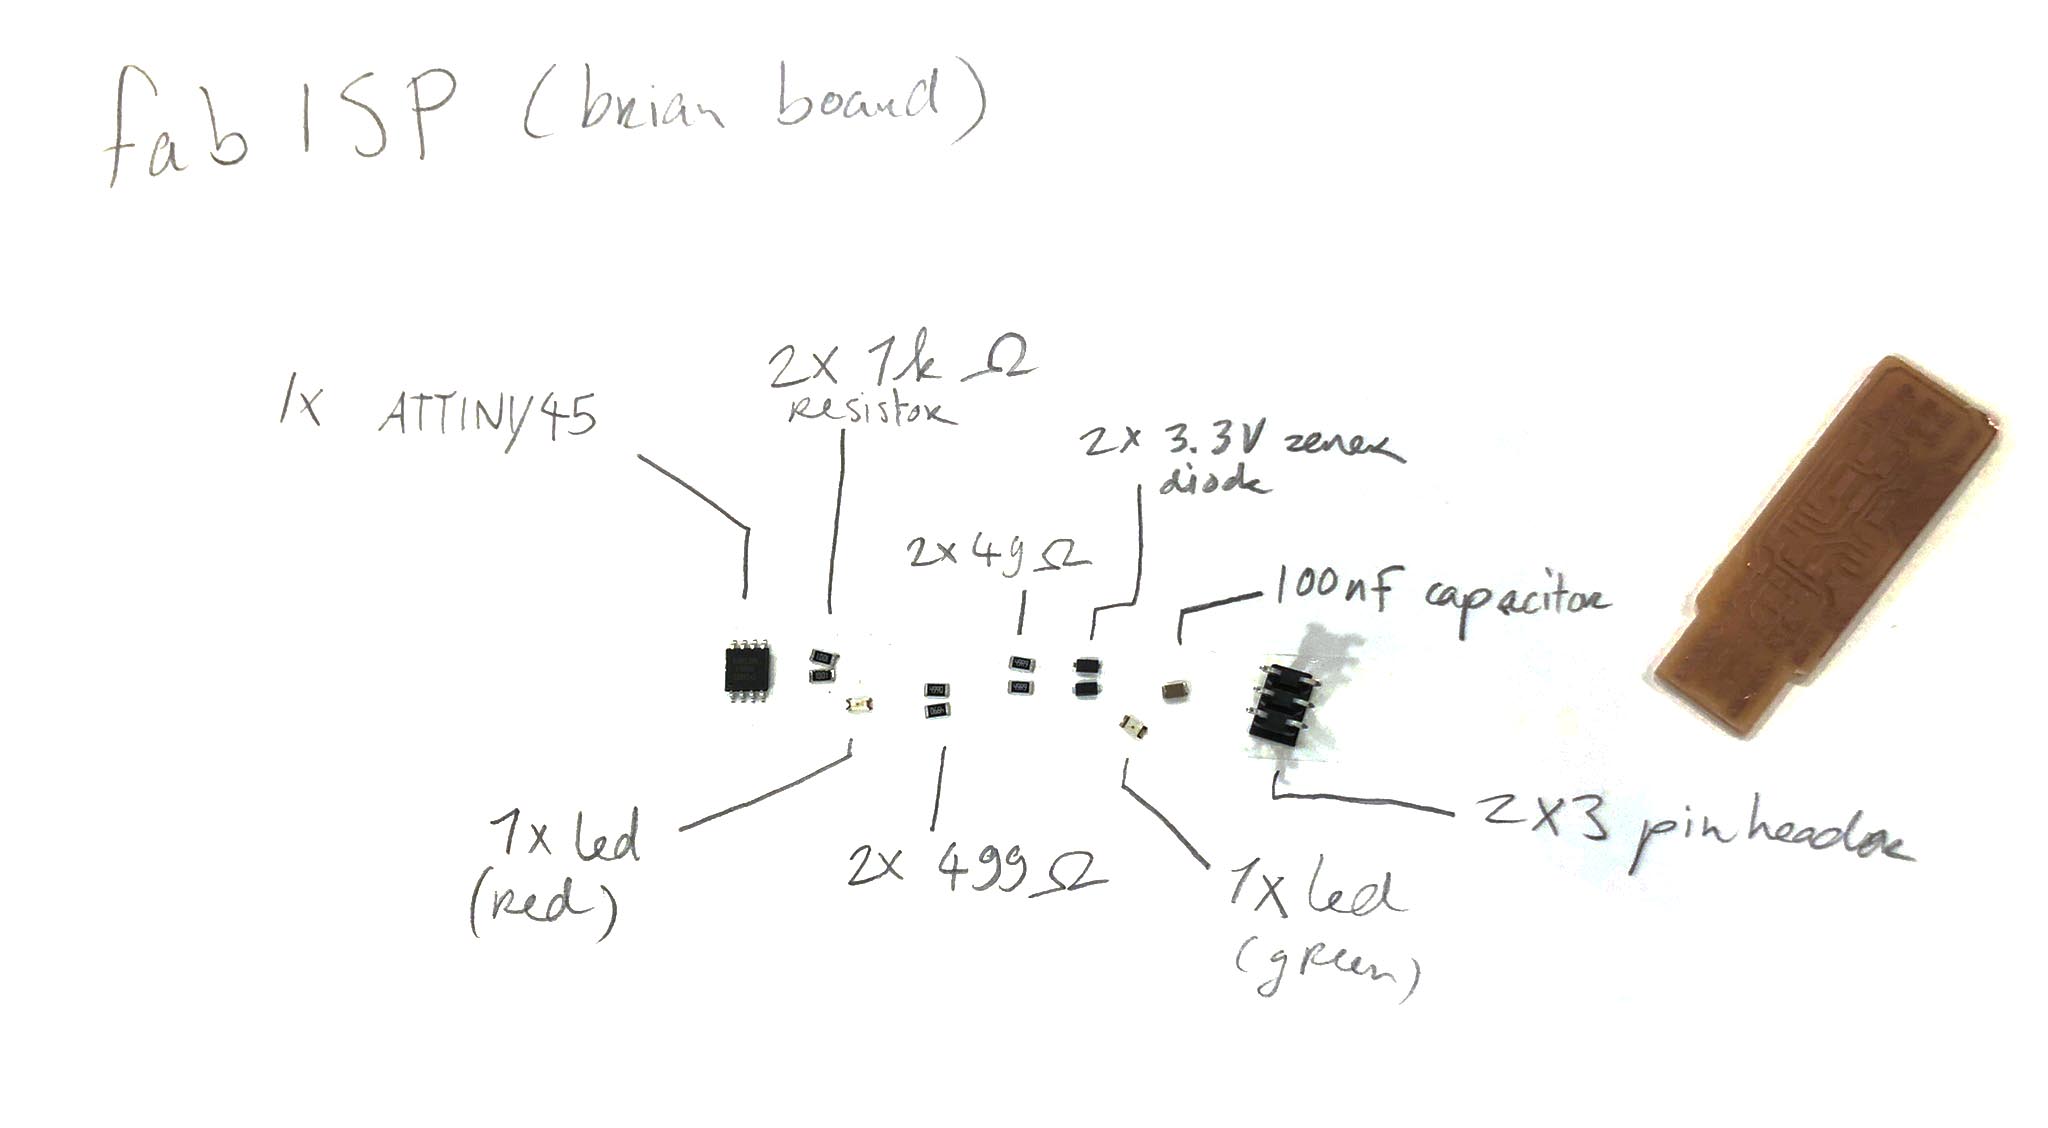 fab ISP (brian board)
1x ATTINY45
2x 1k Ω
resistor
2x 3.3V zener
diode
2x 49Ω
100nF capacitor
1001
4990
4999
1x led
(red)
2x 499Ω
1x led
(green)
2x3 pinheader